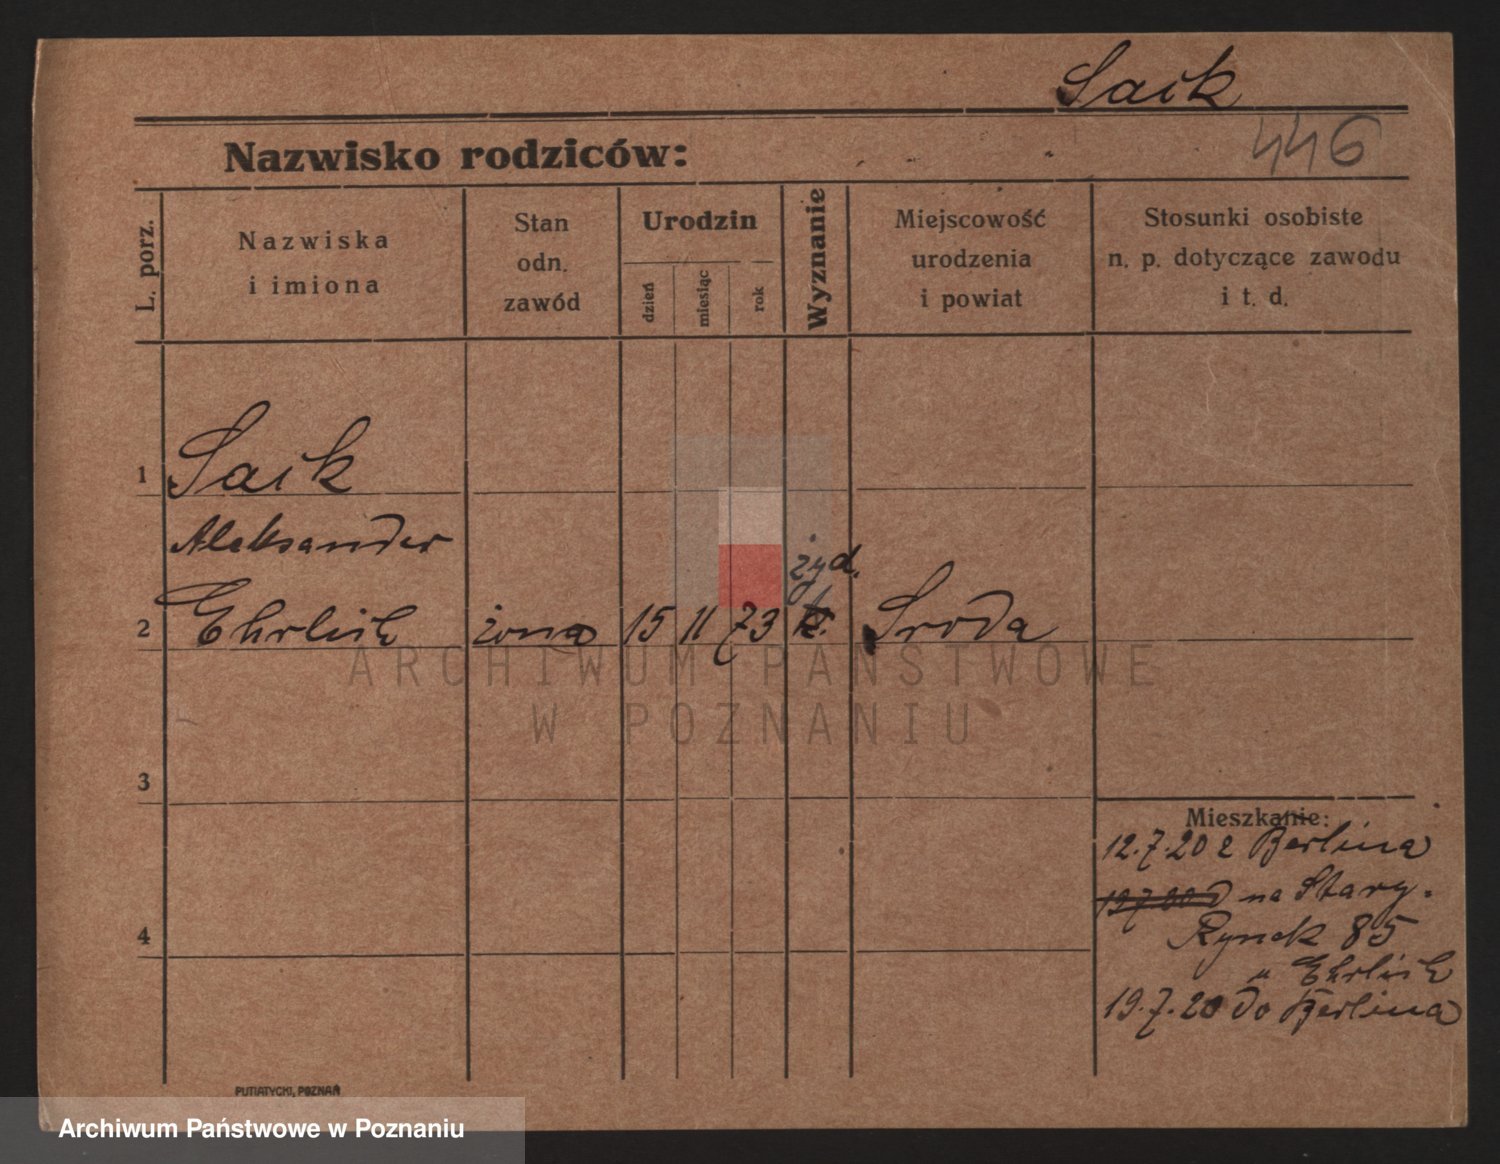 Saik
446
Nazwisko rodziców:
L. porz.
Nazwiska
i imiona
Stan
odn.
zawód
Urodzin
dzień
miesiąc
rok
Wyznanie
Miejscowość
urodzenia
i powiat
Stosunki osobiste
n. p. dotyczące zawodu
i t. d.
1 Saik
Aleksander
żyd.
2 Ehrlich żona 15 11 73 k. Sroda
ARCHIWUM PAŃSTWOWE
W POZNANIU
3
Mieszkanie:
12.7.20 z Berlina
na Stary.
4
Rynek 85
u Ehrlich
19.7.20 do Berlina
PUTIATYCKI, POZNAŃ
Archiwum Państwowe w Poznaniu